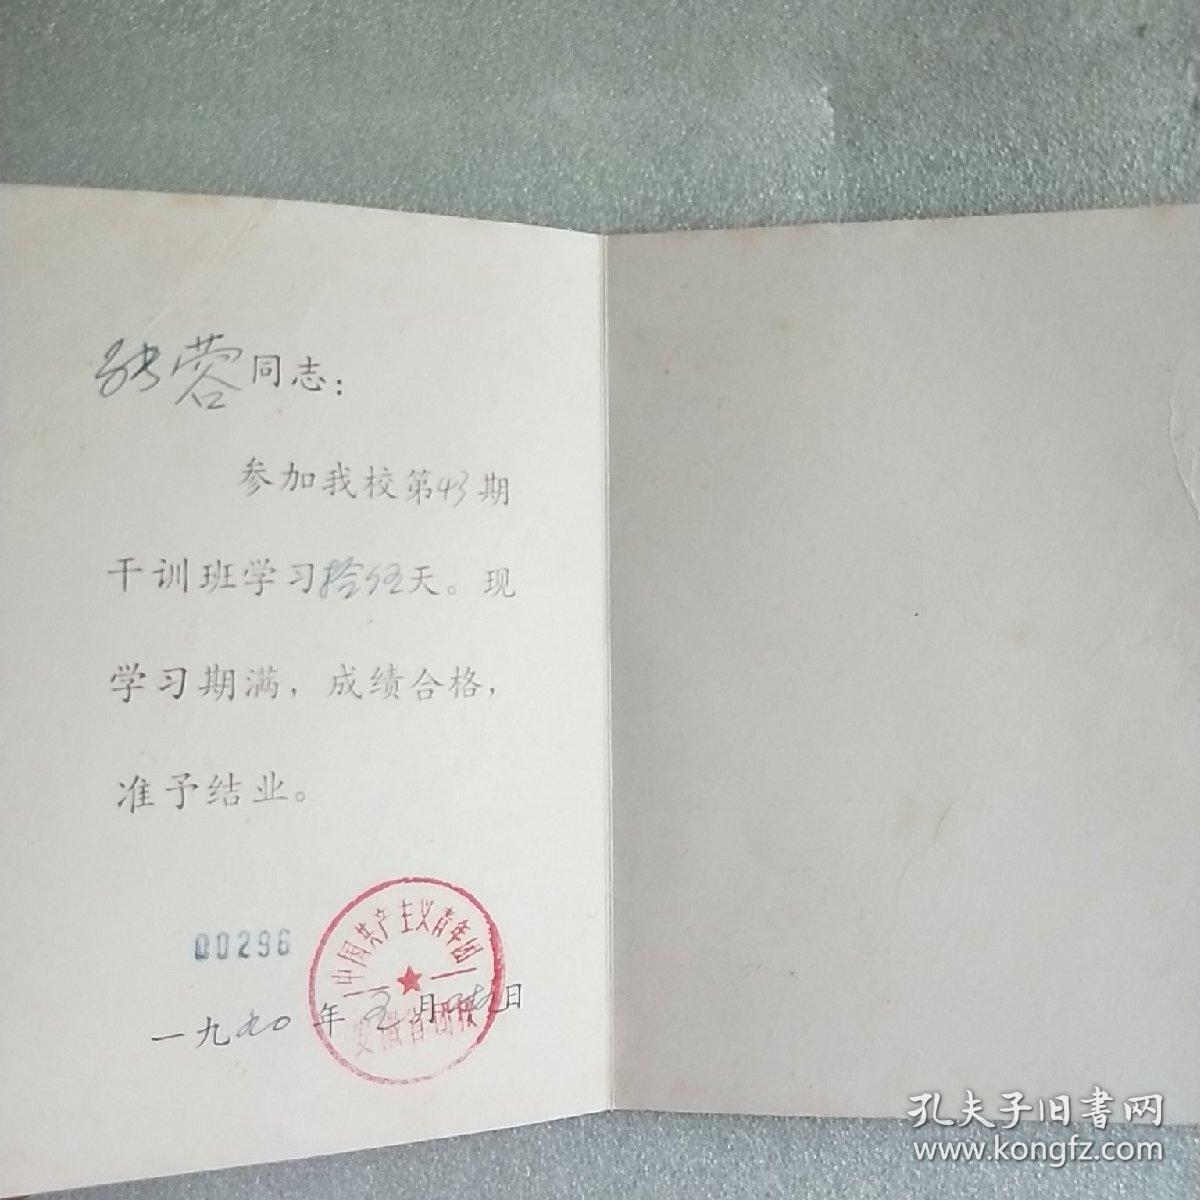 张蓉同志：
参加我校第43期
干训班学习拾伍天。现
学习期满，成绩合格，
准予结业。
00296
中国共产主义青年团
安徽省团校
一九九〇年五月日
孔夫子旧书网
www.kongfz.com